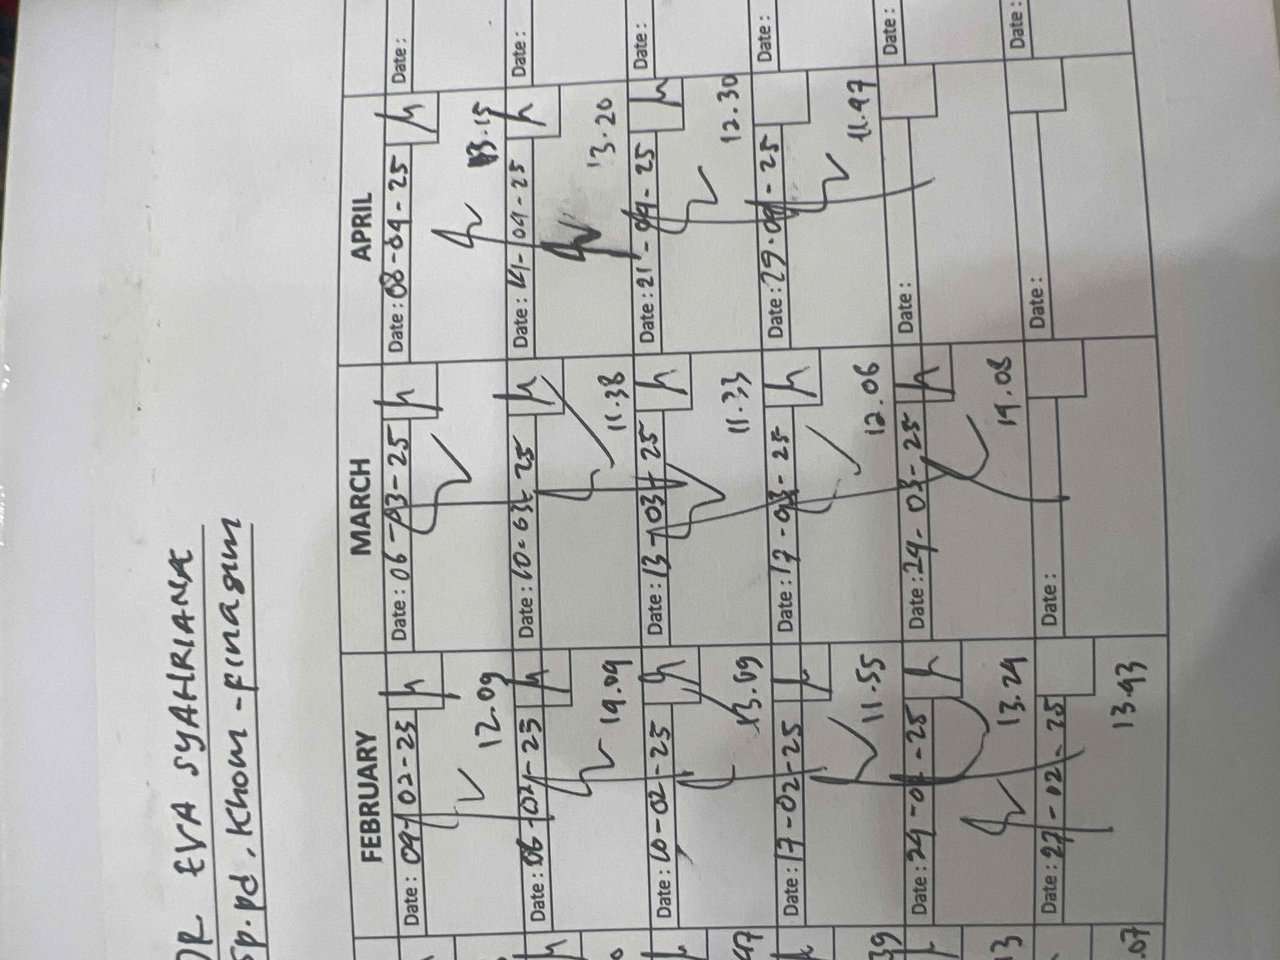 DR EVA SYAHRIANA
Sp.pd. Khom - Finasim
FEBRUARY MARCH APRIL
Date: 04-02-25 h Date: 06-03-25 h Date: 08-04-25 h Date:
12.09 13.15
Date: 06-02-25 h Date: 10-03-25 h Date: 14-04-25 h Date:
14.09 11.38 13.20
Date: 10-02-25 h Date: 13-03-25 h Date: 21-04-25 h Date:
47 13.09 11.33 12.30
Date: 17-02-25 h Date: 17-03-25 h Date: 29-04-25 Date:
39 11.55 12.06 11.47
Date: 24-02-25 h Date: 24-03-25 h Date: Date:
13 13.24 14.08
Date: 27-02-25 Date: Date: Date:
.07 13.43